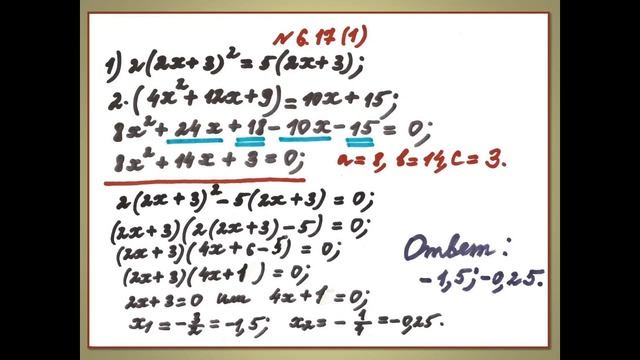 №6.17(1)
1) 2(2x+3)²=5(2x+3);
2·(4x²+12x+9)=10x+15;
8x²+24x+18-10x-15=0;
8x²+14x+3=0; a=8, b=14, c=3.
2(2x+3)²-5(2x+3)=0;
(2x+3)(2(2x+3)-5)=0;
(2x+3)(4x+6-5)=0;
(2x+3)(4x+1)=0;
2x+3=0 или 4x+1=0;
x₁=-3/2=-1,5; x₂=-1/4=-0,25.
Ответ:
-1,5; -0,25.